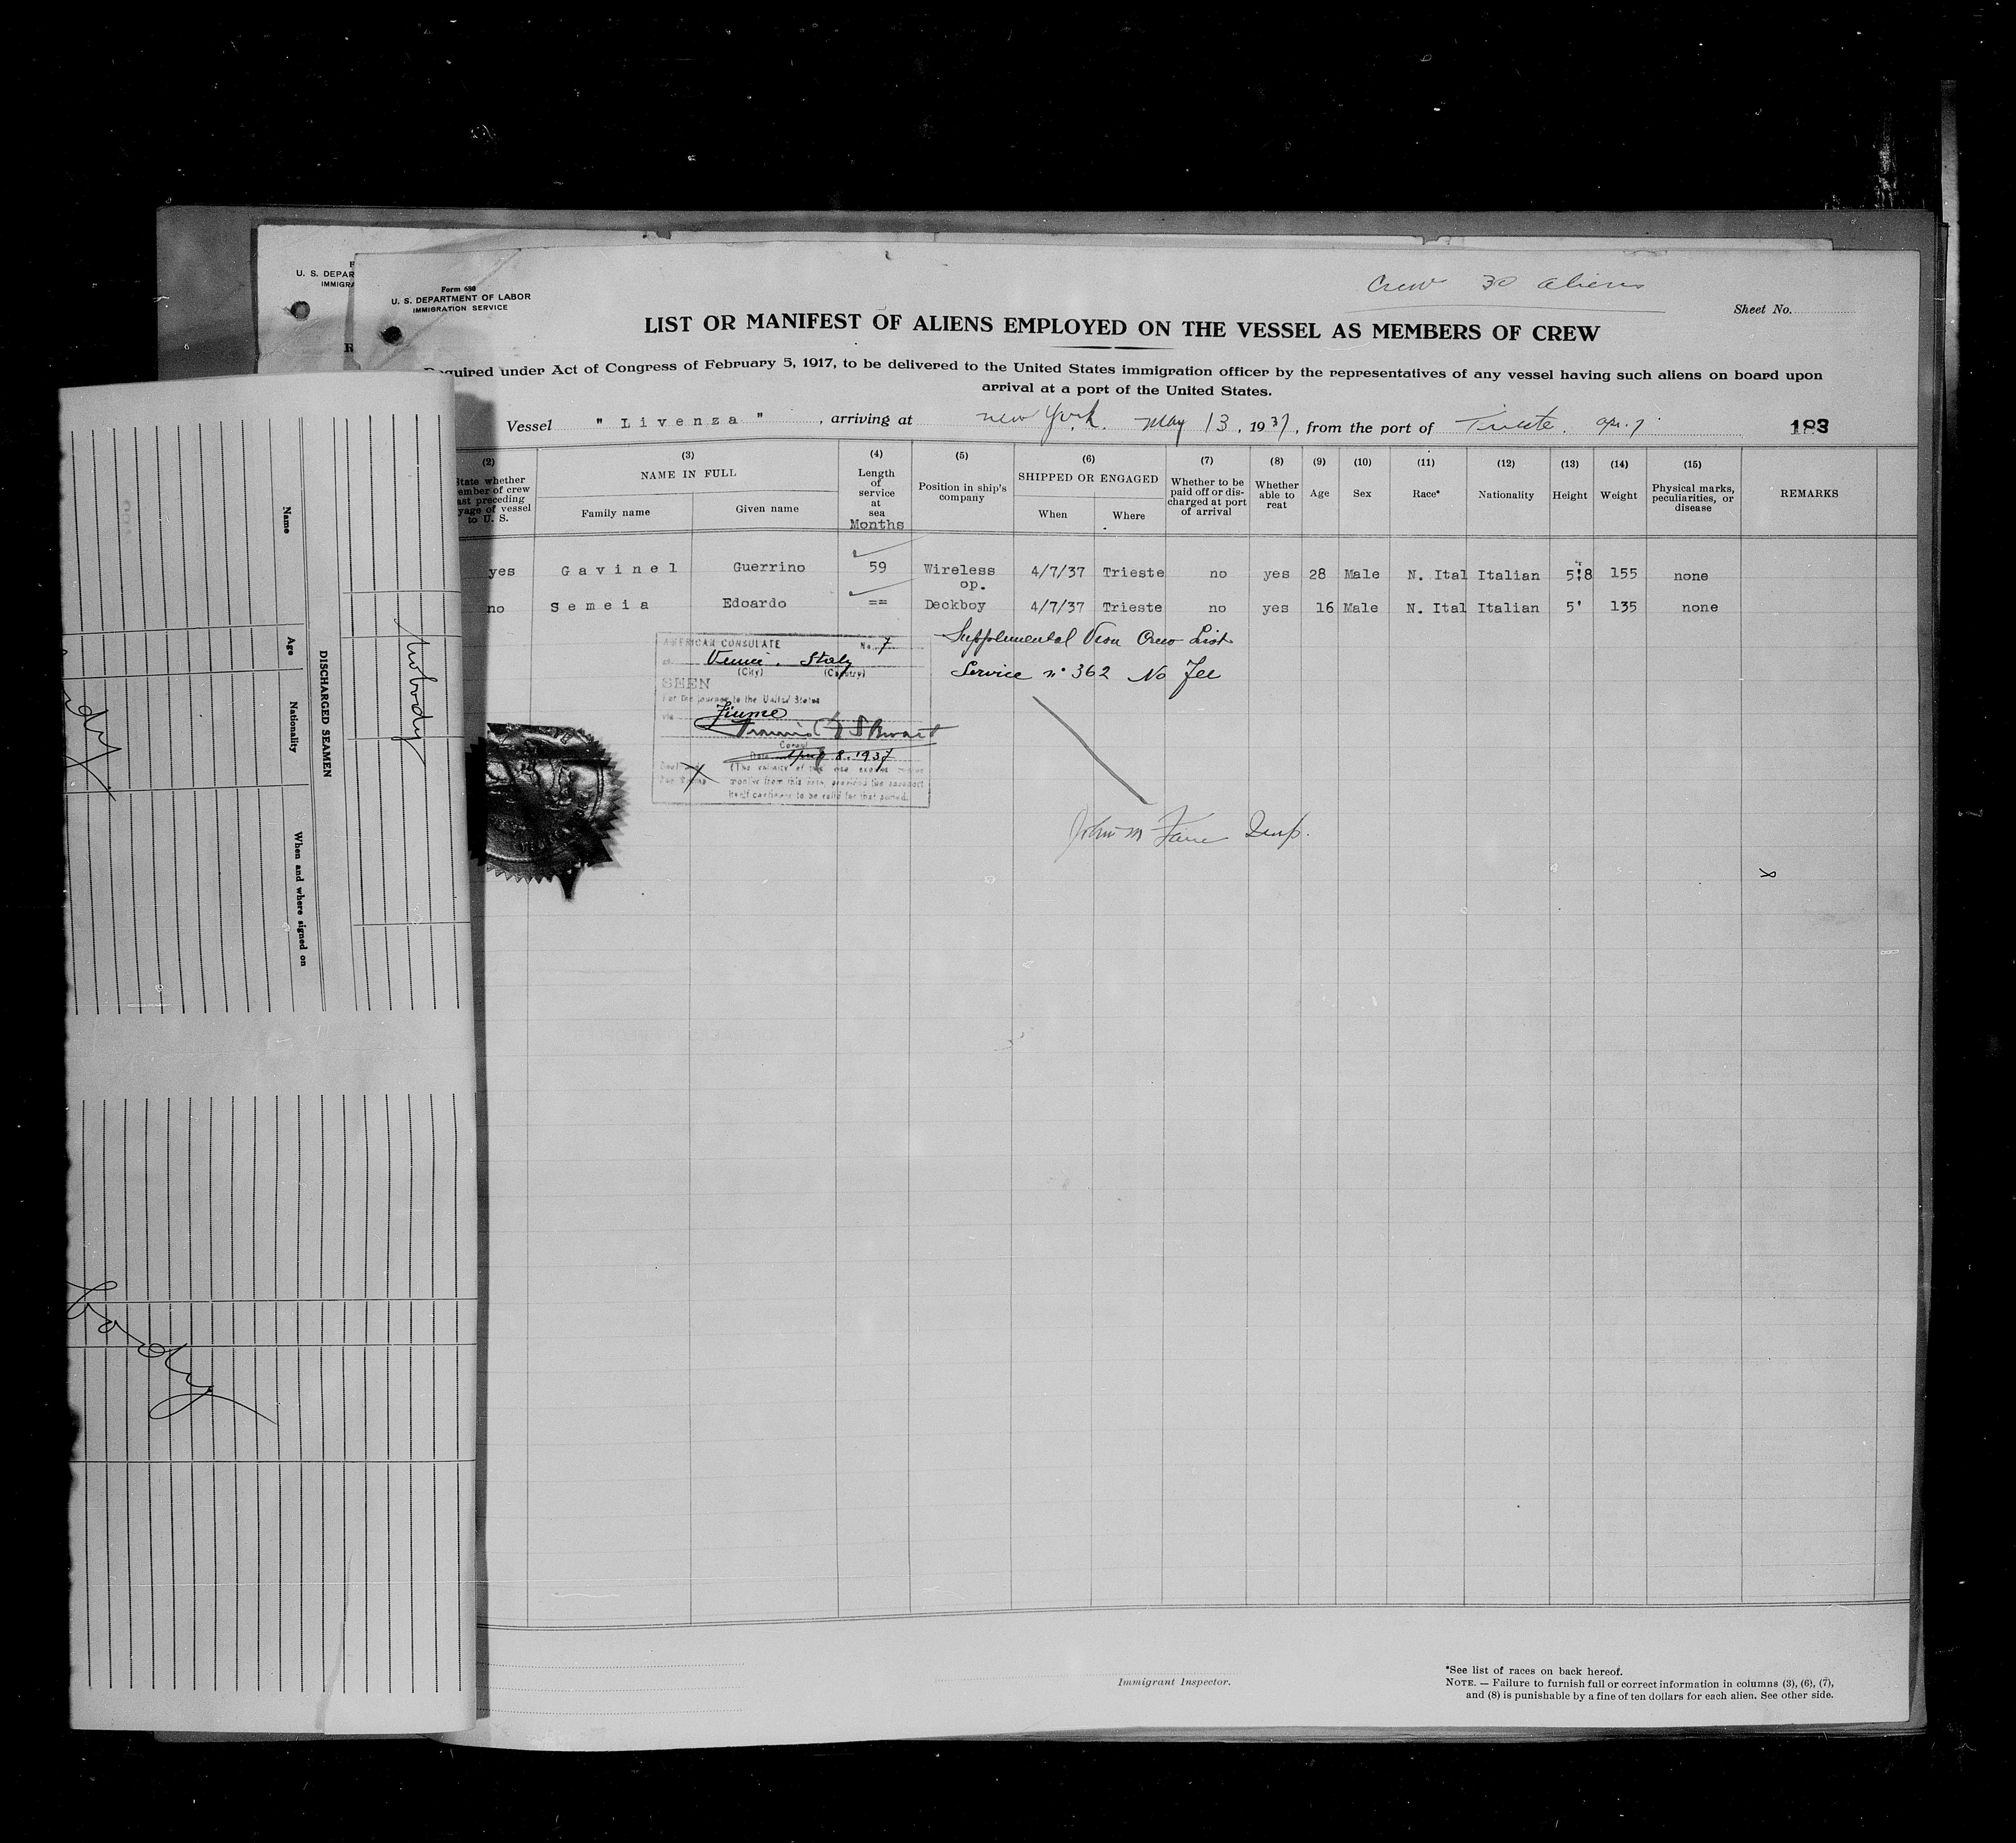 U. S. DEPAR
IMMIGRA
Form 680
U. S. DEPARTMENT OF LABOR
IMMIGRATION SERVICE
Crew 30 aliens
Sheet No.
LIST OR MANIFEST OF ALIENS EMPLOYED ON THE VESSEL AS MEMBERS OF CREW
Required under Act of Congress of February 5, 1917, to be delivered to the United States immigration officer by the representatives of any vessel having such aliens on board upon
arrival at a port of the United States.
Vessel " Livenza " , arriving at New York. May 13, 1937, from the port of Trieste. Apr. 7 183
(2) (3) (4) (5) (6) (7) (8) (9) (10) (11) (12) (13) (14) (15)
State whether
ember of crew
ast preceding
yage of vessel
to U. S.
NAME IN FULL
Family name
Given name
Length
of
service
at
sea
Months
Position in ship's
company
SHIPPED OR ENGAGED
When
Where
Whether to be
paid off or dis-
charged at port
of arrival
Whether
able to
reat
Age
Sex
Race*
Nationality
Height
Weight
Physical marks,
peculiarities, or
disease
REMARKS
yes Gavinel Guerrino 59 Wireless op. 4/7/37 Trieste no yes 28 Male N. Ital Italian 5'8 155 none
no Semeia Edoardo == Deckboy 4/7/37 Trieste no yes 16 Male N. Ital Italian 5' 135 none
AMERICAN CONSULATE No. 7
at Venice, Italy
(City) (Country)
SEEN
For the journey to the United States
via Fiume
Consul
Date April 8, 1937
(The validity of this visa expires
months from this date, provided the passport
itself continues to be valid for that period.
Supplemental Visa Crew List
Service nº 362 No Fee
John M Insp.
Name
Age
Nationality
When and where signed on
DISCHARGED SEAMEN
Nobody
ody
body
Immigrant Inspector.
*See list of races on back hereof.
NOTE. — Failure to furnish full or correct information in columns (3), (6), (7),
and (8) is punishable by a fine of ten dollars for each alien. See other side.